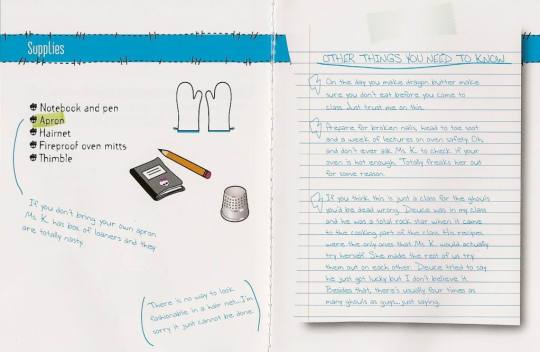 Supplies
Notebook and pen
Apron
Hairnet
Fireproof oven mitts
Thimble
If you don't bring your own apron
Ms. K. has box of loaners and they
are totally nasty.
There is no way to look
fashionable in a hair net...I'm
sorry it just cannot be done.
OTHER THINGS YOU NEED TO KNOW
On the day you make dragon butter make
sure you don't eat before you come to
class. Just trust me on this.
Prepare for broken nails, head to toe soot
and a week of lectures on oven safety. Oh,
and don't ever ask Ms. K. to check if your
oven is hot enough. Totally freaks her out
for some reason.
If you think this is just a class for the ghouls
you'd be dead wrong. Deuce was in my class
and he was a total rock star when it came
to the cooking part of the class. His recipes
were the only ones that Ms. K. would actually
try herself. She made the rest of us try
them out on each other. Deuce tried to say
he just got lucky but I don't believe it.
Besides that, there's usually four times as
many ghouls as guys...just saying.